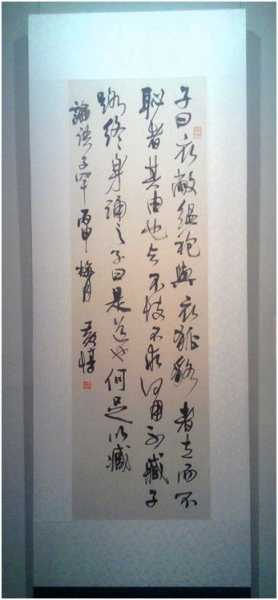 子曰衣敝緼袍與衣狐貉者立而不
恥者其由也与不忮不求何用不臧子
路終身誦之子曰是道也何足以臧
論語子罕 丙申梅月